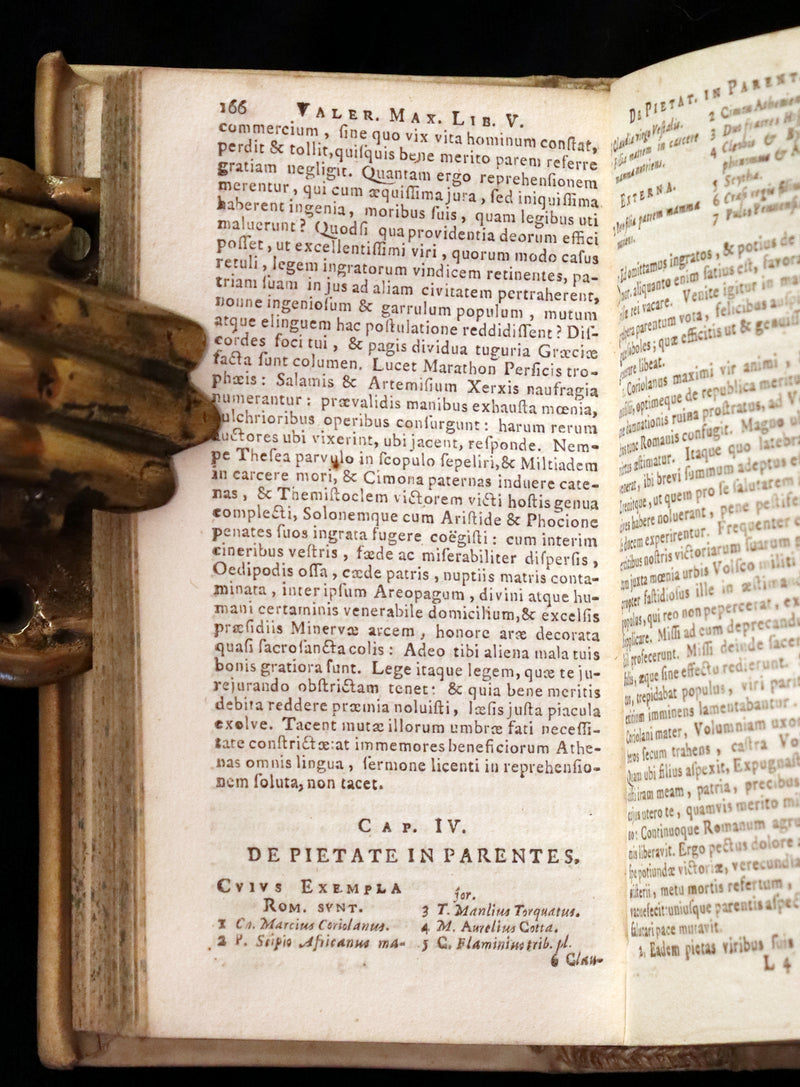 166 VALER. MAX. LIB. V.
commercium, ſine quo vix vita hominum conſtat,
perdit & tollit, quiſquis bene merito parem referre
gratiam negligit. Quantam ergo reprehenſionem
merentur, qui cum æquiſſima jura, ſed iniquiſſima
haberent ingenia, moribus ſuis, quam legibus uti
maluerunt? Quodſi qua providentia deorum effici
poſſet, ut excellentiſſimi viri, quorum modo caſus
retuli, legem ingratorum vindicem retinentes, pa-
triam ſuam in jus ad aliam civitatem pertraherent,
nonne ingenioſum & garrulum populum, mutum
atque elinguem hac poſtulatione reddidiſſent? Diſ-
cordes foci tui, & pagis dividua tuguria Græciæ
facta ſunt columen. Lucet Marathon Perſicis tro-
phæis: Salamis & Artemiſium Xerxis naufragia
numerantur: prævalidis manibus exhauſta mœnia,
pulchrioribus operibus conſurgunt: harum rerum
auctores ubi vixerint, ubi jacent, reſponde. Nem-
pe Theſea parvulo in ſcopulo ſepeliri, & Miltiadem
in carcere mori, & Cimona paternas induere cate-
nas, & Themiſtoclem victorem victi hoſtis genua
complecti, Solonemque cum Ariſtide & Phocione
penates ſuos ingrata fugere coëgiſti: cum interim
cineribus veſtris, fæde ac miſerabiliter diſperſis,
Oedipodis oſſa, cæde patris, nuptiis matris conta-
minata, inter ipſum Areopagum, divini atque hu-
mani certaminis venerabile domicilium, & excelſis
præſidiis Minervæ arcem, honore aræ decorata
quaſi ſacroſancta colis: Adeo tibi aliena mala tuis
bonis gratiora ſunt. Lege itaque legem, quæ te ju-
rejurando obſtrictam tenet: & quia bene meritis
debita reddere præmia noluiſti, læſis juſta piacula
exolve. Tacent mutæ illorum umbræ fati neceſſi-
tate conſtrictæ: at immemores beneficiorum Athe-
nas omnis lingua, ſermone licenti in reprehenſio-
nem ſoluta, non tacet.
CAP. IV.
DE PIETATE IN PARENTES.
CVIVS EXEMPLA
ROM. SVNT.
1 Cn. Marcius Coriolanus.
2 P. Scipio Africanus ma-
jor.
3 T. Manlius Torquatus.
4 M. Aurelius Cotta.
5 C. Flaminius trib. pl.
6 Clau-
DE PIETAT. IN PARENT
Claudia virgo Veſtalis.
matrem in carcere
EXTERNA.
patrem mamma
2 Cimon Athenien
3 Duo fratres
4 Cleobis & B
& A
5 Scythæ.
6 filiu
7
omittamus ingratos, & potius de
aliquanto enim ſatius eſt, favora
rei vacare. Venite igitur in ma
parentum vota, felicibus auſp
quæ efficitis ut &
libeat.
1. Coriolanus maximi vir animi,
optimeque de republica merit
damnationis ruina proſtratus, ad V
Romanis confugit. Magno u
æſtimatur. Itaque quo latebra
ibi brevi ſummum adeptus e
ut quem pro ſe ſalutarem
habere noluerant, pene peſtife
ducem experirentur. Frequenter
noſtris victoriarum ſuarum
juxta mœnia urbis Volſco militi
propter faſtidioſus ille in æſtima
populus, qui reo non pepercerat, ex
Miſſi ad eum deprecandu
profecerunt. Miſſi deinde ſacer
æque ſine effectu redierunt.
trepidabat populus, viri parit
exitium imminens lamentabantur.
Coriolani mater, Volumniam uxor
ſecum trahens, caſtra Vo
Quam ubi filius aſpexit, Expugnaſt
iram meam, patria, precibus
utero te, quamvis merito mi
Continuoque Romanum agru
liberavit. Ergo pectus dolore
potiundæ victoriæ, verecundia
metu mortis refertum,
uniuſque parentis aſpec
pace mutavit.
2. Eadem pietas viribus ſuis
L 4